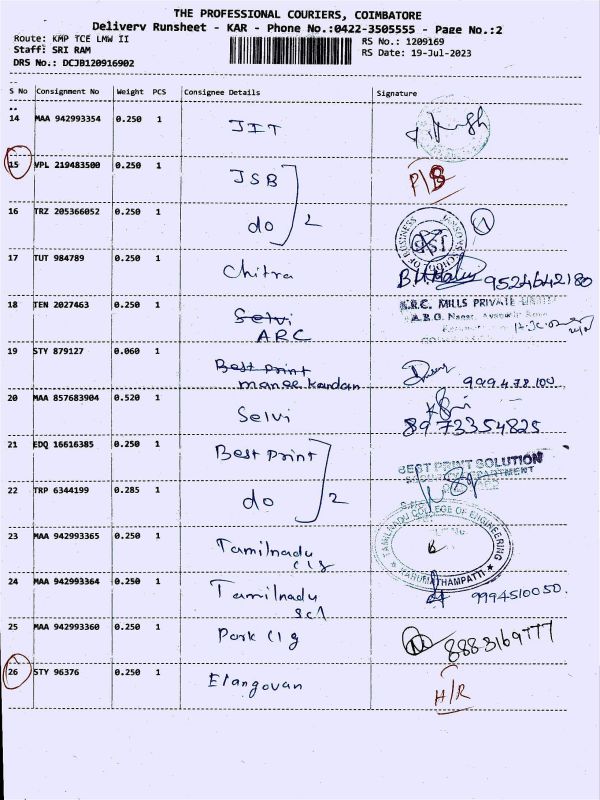 THE PROFESSIONAL COURIERS, COIMBATORE
Delivery Runsheet - KAR - Phone No.:0422-3505555 - Page No.:2
Route: KMP TCE LMW II
RS No.: 1209169
Staff: SRI RAM
RS Date: 19-Jul-2023
DRS No.: DCJB120916902
S No Consignment No Weight PCS Consignee Details Signature
14 MAA 942993354 0.250 1 JIT
15 VPL 219483500 0.250 1 JSB P/B
16 TRZ 205366052 0.250 1 do 2
SCHOOL OF BUSINESS
17 TUT 984789 0.250 1 Chitra 9524642180
18 TEN 2027463 0.250 1 Selvi
ARC
K.R.C. MILLS PRIVATE LIMITED
19 STY 879127 0.060 1 Best print
maneekandan
20 MAA 857683904 0.520 1 Selvi 8973354825
21 EDQ 16616385 0.250 1 Best Print
BEST PRINT SOLUTION
SECURITY DEPARTMENT
22 TRP 6344199 0.285 1 do 2
TAMILNADU COLLEGE OF ENGINEERING
KARUMATHAMPATTI
23 MAA 942993365 0.250 1 Tamilnadu
clg
24 MAA 942993364 0.250 1 Tamilnadu
scl
9994510050.
25 MAA 942993360 0.250 1 Park clg 8883169777
26 STY 96376 0.250 1 Elangovan H/R